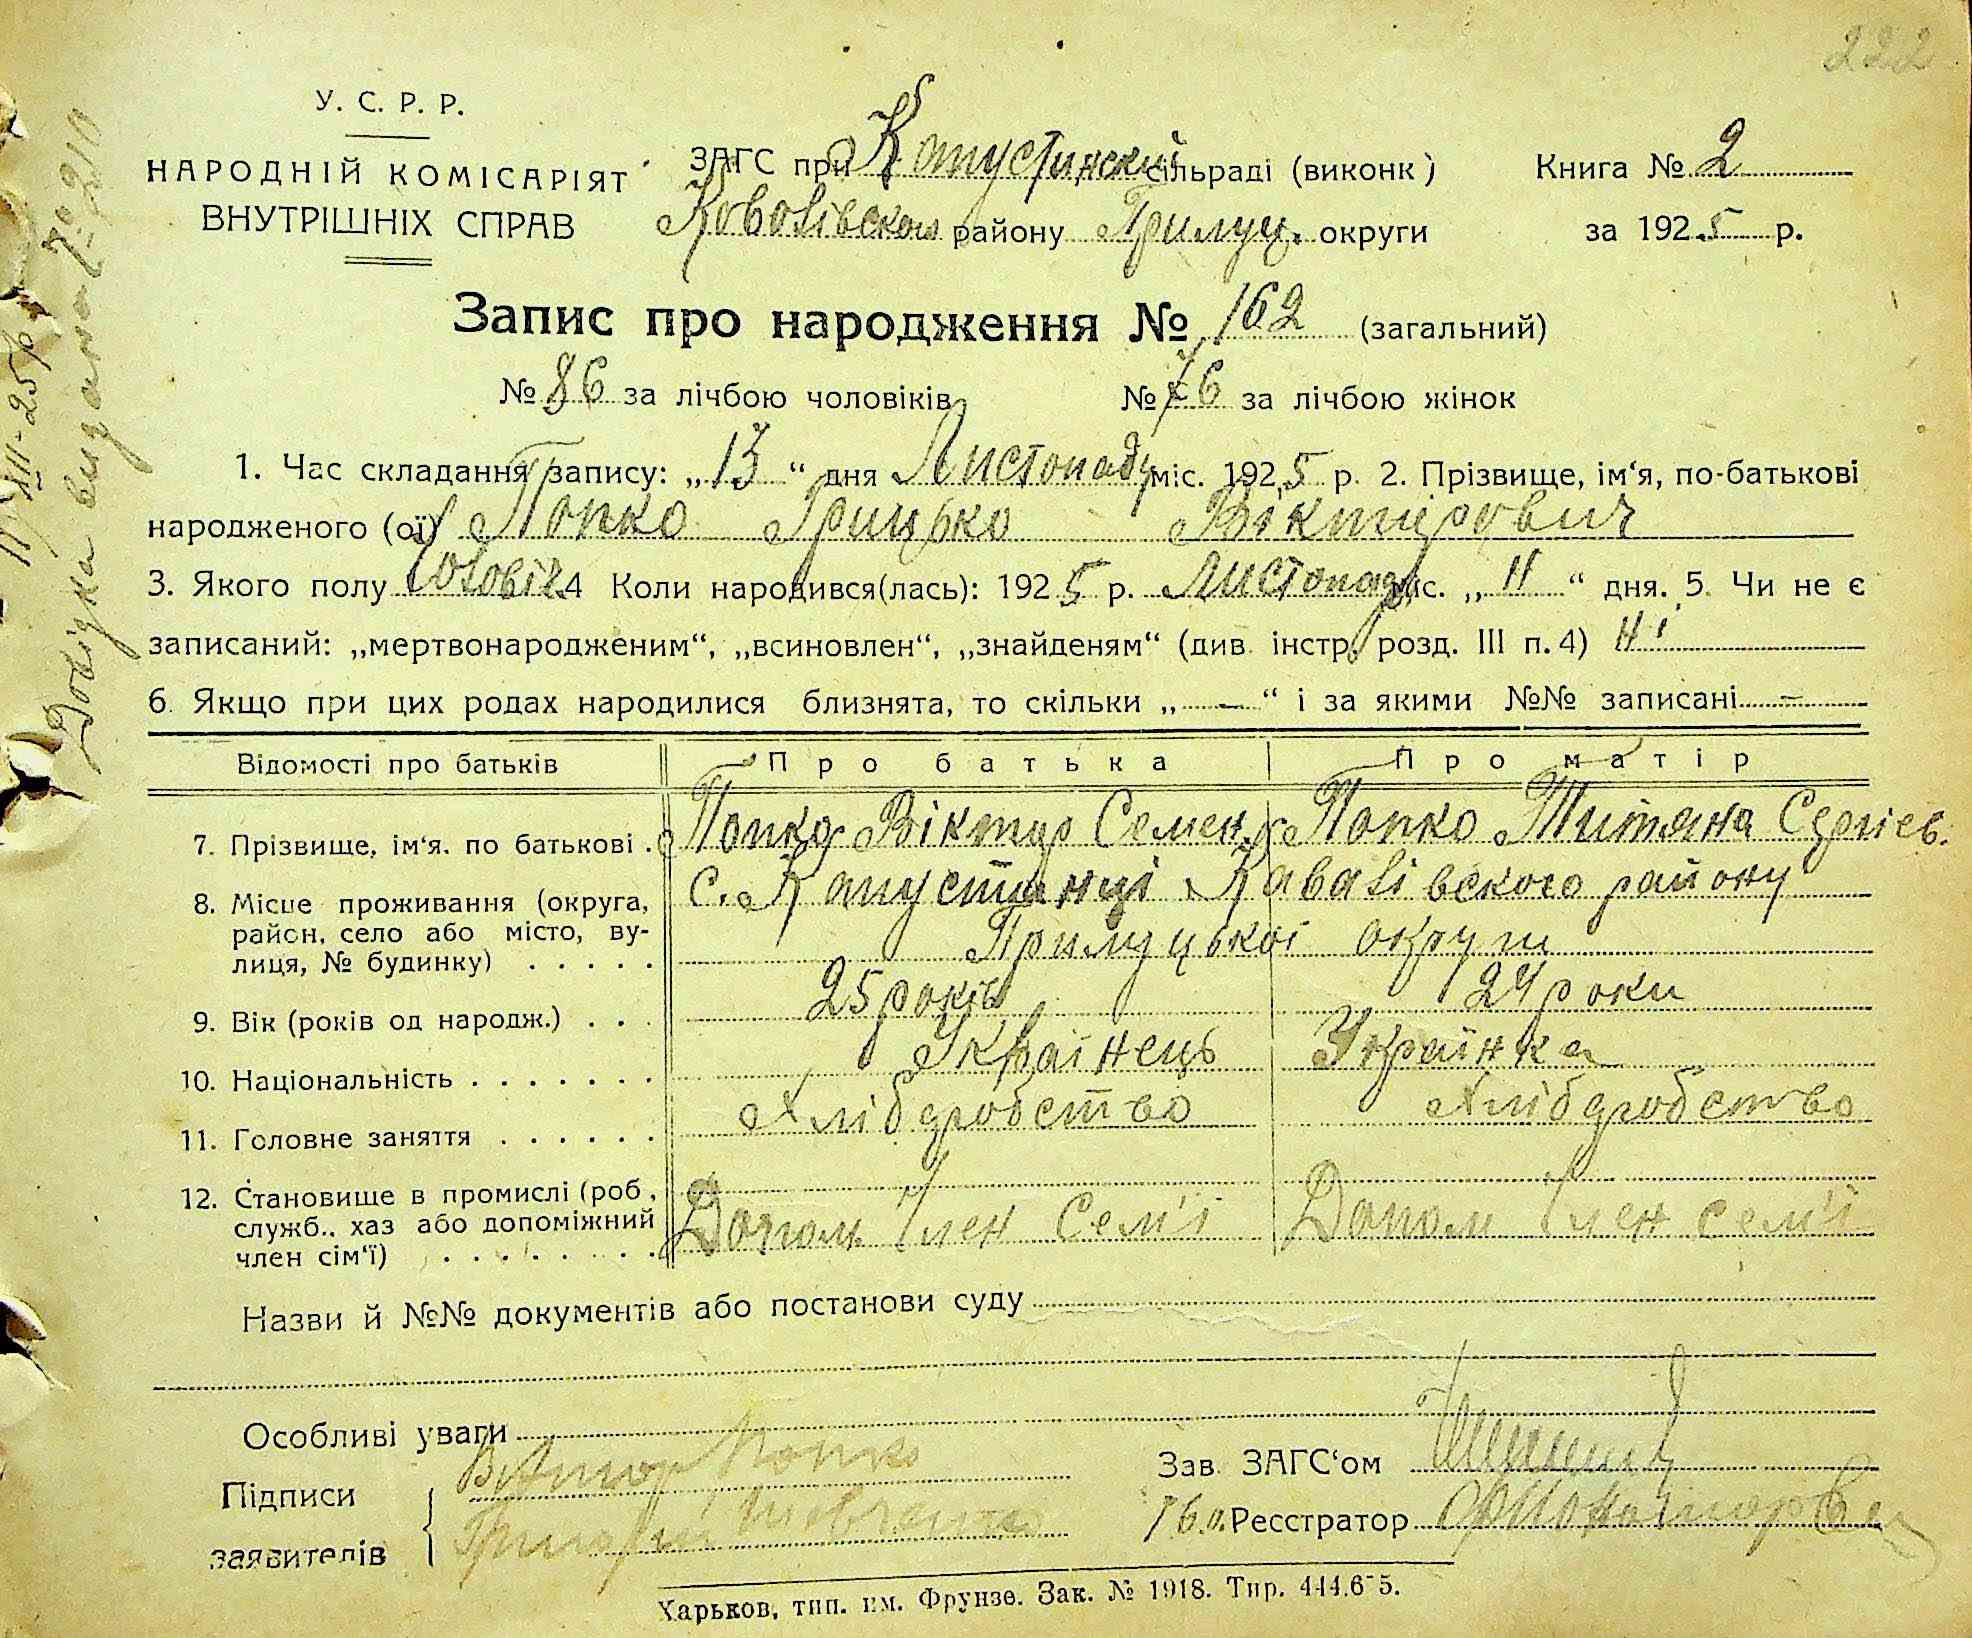 222
У. С. Р. Р.
НАРОДНІЙ КОМІСАРІЯТ
ВНУТРІШНІХ СПРАВ
ЗАГС при Капустинский сільраді (виконк)
Ковалівского району Прилуц. округи
Книга № 2
за 1925 р.
Запис про народження № 162 (загальний)
№ 86 за лічбою чоловіків № 76 за лічбою жінок
1. Час складання запису: „13“ дня Листопаду міс. 1925 р. 2. Прізвище, ім‘я, по-батькові
народженого (ої) Попко Грицько Віктурович
3. Якого полу Чоловіч. 4 Коли народився(лась): 1925 р. Листопаду міс. „11“ дня. 5. Чи не є
записаний: „мертвонародженим“, „всиновлен“, „знайденям“ (див. інстр. розд. III п. 4) Ні
6. Якщо при цих родах народилися близнята, то скільки „—“ і за якими №№ записані —
Відомості про батьків Про батька Про матір
7. Прізвище, ім‘я, по батькові . Попко Віктур Семен. Попко Титяна Сергіев.
8. Місце проживання (округа, с. Капустинці Кавалівского району
район, село або місто, ву- Прилуцькоі округи
лиця, № будинку) . . . . .
9. Вік (років од народж.) . . . 25 років 24 роки
10. Національність . . . . . . . Українець Українка
11. Головне заняття . . . . . . Хлібдробство Хлібдробство
12. Становище в промислі (роб.,
служб., хаз або допоміжний Допом. Член Сем'ї Допом Член сем'ї
член сім‘ї) . . . . . . . .
Назви й №№ документів або постанови суду
Особливі уваги
Підписи Віктор Попко
заявителів Григорій Шевченко
Зав. ЗАГС‘ом
Тво. Ресстратор
Харьков, тип. им. Фрунзе. Зак. № 1918. Тир. 444.6-5.
Довідка видана № 210
XII-25р